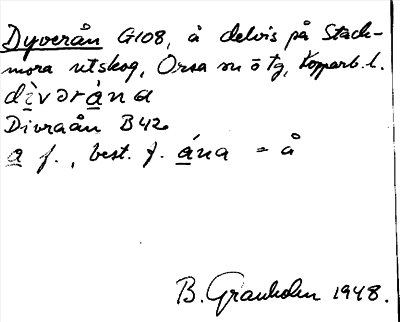 Dyverån G108, å delvis på Stack-
mora utskog, Orsa sn ö tg, Kopparb. l.
dìvəràna
Divraån B42
a f., best. f. ána = å
B. Granholm 1948.